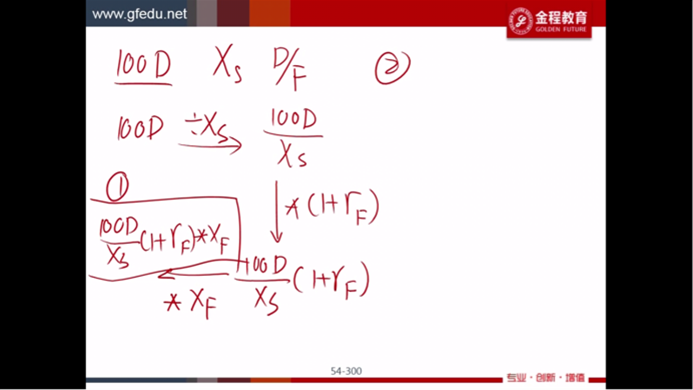 www.gfedu.net
金程教育
GOLDEN FUTURE
100D Xs D/F ②
100D ÷Xs→ 100D/Xs
①
*(1+rF)
100D/Xs (1+rF)*XF
100D/Xs (1+rF)
* XF
54-300
专业·创新·增值